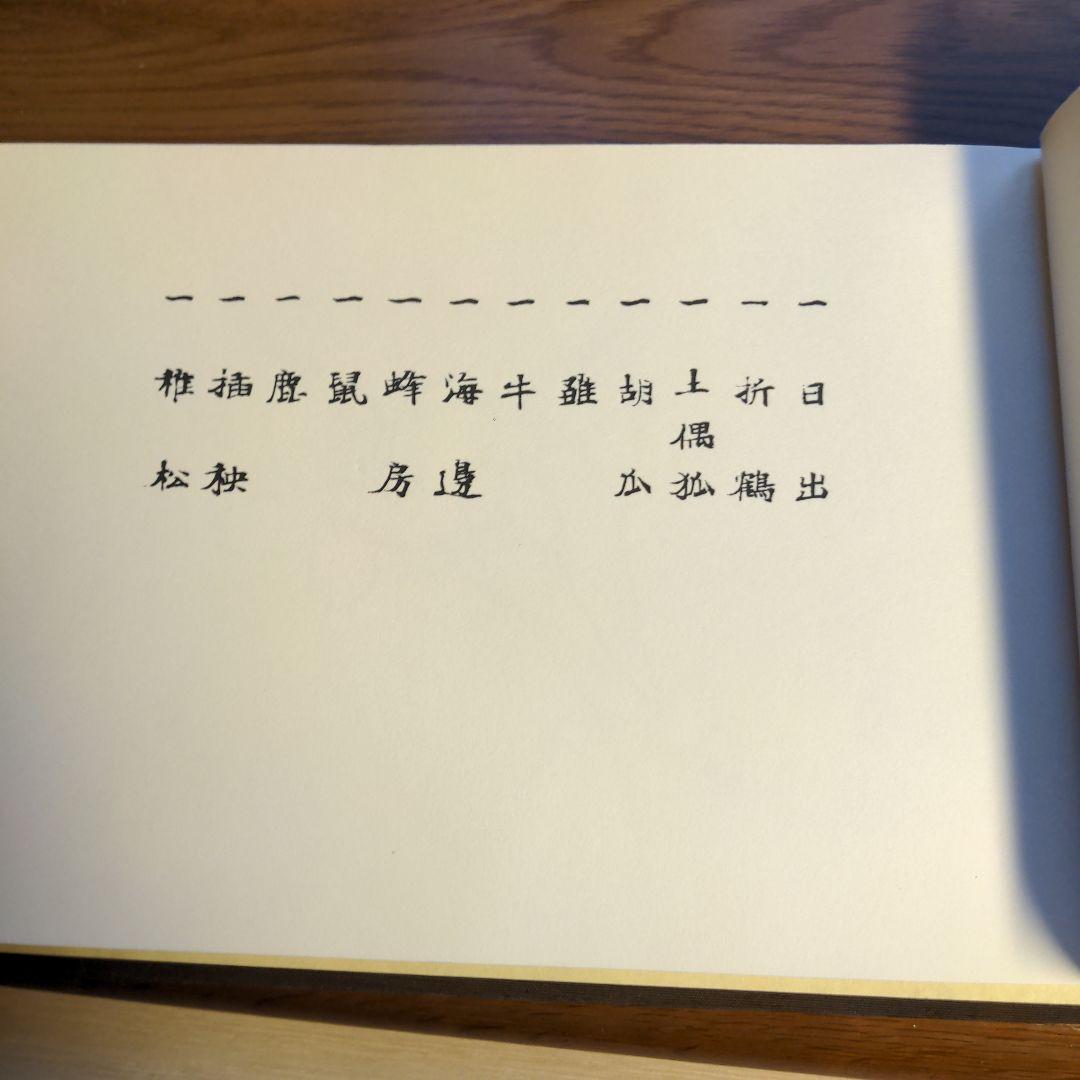 一日出
一折鶴
一土偶狐
一胡瓜
一雛
一牛
一海邊
一蜂房
一鼠
一鹿
一挿秧
一稚松